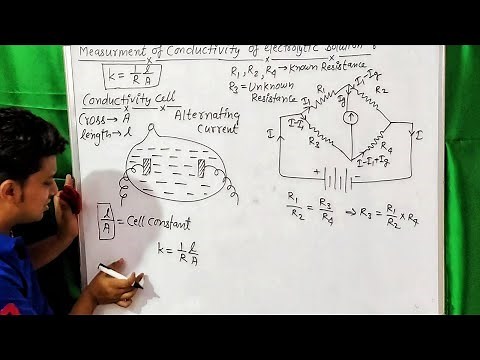 Measurment of Conductivity of electrolytic solution
k = 1/R l/A
R1, R2, R4 → Known Resistance
R3 = Unknown
Resistance
Conductivity Cell
Cross → A
length → l
Alternating
Current
R1
I1
Ig
I1-Ig
R2
I-I1
R3
R4
I-I1+Ig
I
I
+
-
l/A = Cell Constant
k = 1/R l/A
R1/R2 = R3/R4 ⇒ R3 = R1/R2 × R4